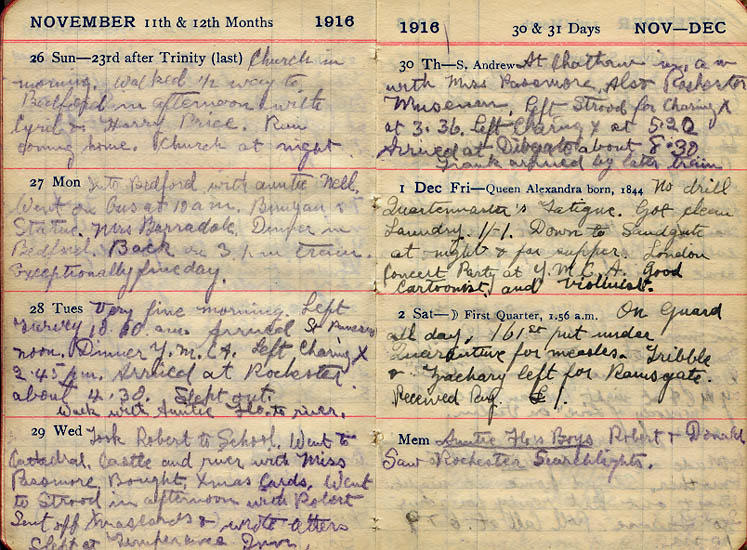 NOVEMBER 11th & 12th Months 1916
26 Sun—23rd after Trinity (last) Church in
morning. Walked ½ way to
Bedford in afternoon with
Cyril & Harry Price. Rain
coming home. Church at night
27 Mon Into Bedford with auntie Nell.
Went on Bus at 10 a.m. Bunyan's
Statue. Mrs Barradale. Dinner in
Bedford. Back on 3 p.m train.
Exceptionally fine day.
28 Tues Very fine morning. Left
Turvey 10.50 a.m. arrived St Pancras
noon. Dinner Y.M.C.A. Left Charing X
2.45 p.m. Arrived at Rochester
about 4.30. Slept out.
Walk with Auntie Flo. to river.
29 Wed Took Robert to School. Went to
Cathedral, Castle and river with Miss
Passmore. Bought Xmas Cards. Went
to Strood in afternoon with Robert
Sent off Xmas cards & wrote letters
Slept at Temperance Inn.
1916 30 & 31 Days NOV—DEC
30 Th—S. Andrew At Chatham in a m
with Miss Passmore. Also Rochester
Museum. Left Strood for Charing X
at 3.36. Left Charing X at 5.20
Arrived at about 8.30
Frank arrived by later train
1 Dec Fri—Queen Alexandra born, 1844 No drill
Quartermaster's Fatigue. Got clean
Laundry. 1/-1. Down to Sandgate
at night & for supper. London
Concert Party at Y.M.C.A. Good
Cartoonist, and Violinist.
2 Sat—☽ First Quarter, 1.56 a.m. On Guard
all day. 161st put under
Quarantine for measles. Tribble
& Zachary left for Ramsgate.
Received Pay. £1.
Mem Auntie Floss Boys Robert & Donald
Saw Rochester Searchlights.